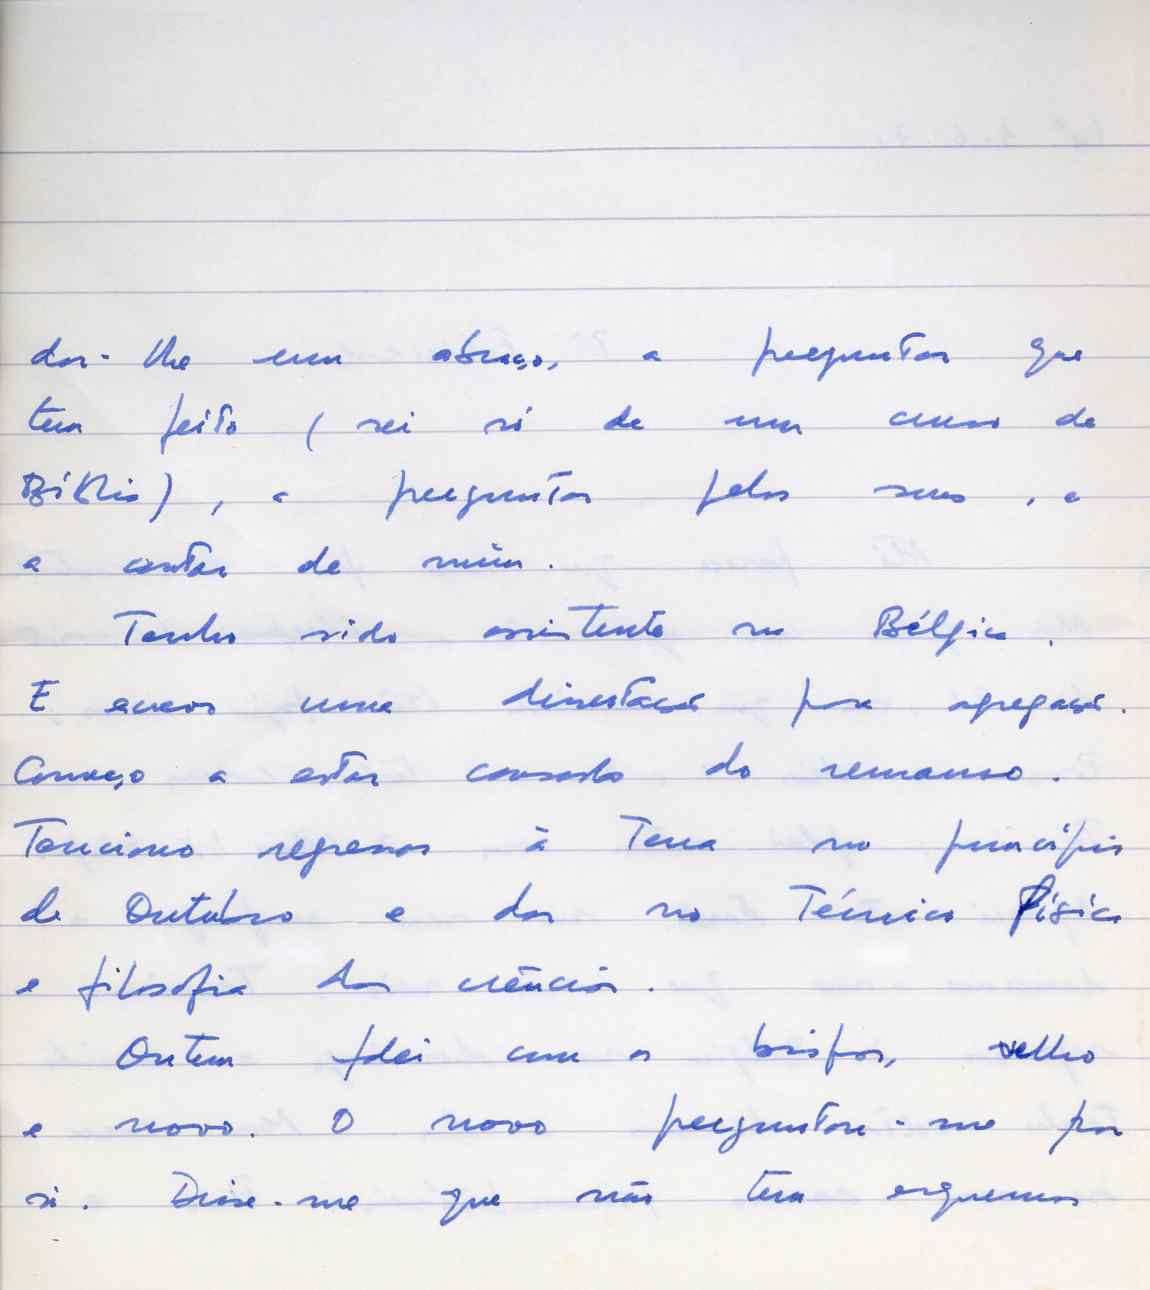 dar-lhe um abraço, a perguntar que
tem feito (sei só de um curso de
Bíblia), a perguntar pelos seus, e
a contar de mim.
Tenho sido assistente na Bélgica.
E escrevo uma dissertação para agregação.
Começo a estar cansado do remanso.
Tenciono regressar à Terra no princípio
de Outubro e dar no Técnico Física
e filosofia das ciências.
Ontem falei com os bispos, velho
e novo. O novo perguntou-me por
si. Disse-me que não tem esquemas